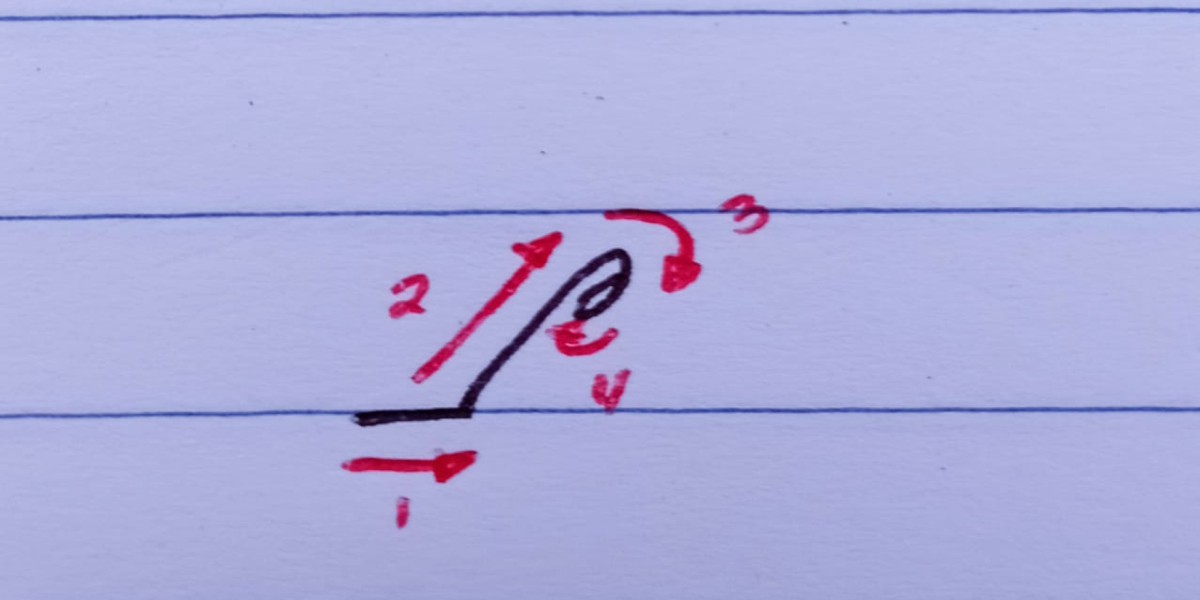 3
2
4
1